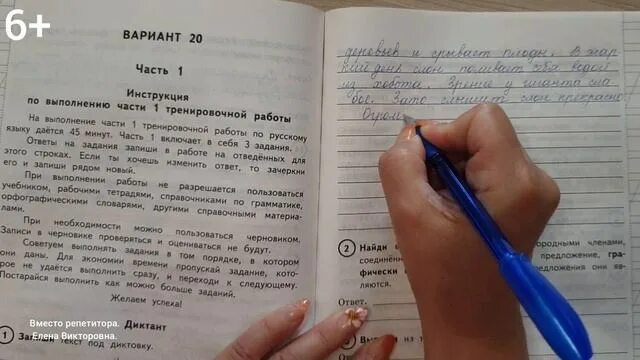 6+
ВАРИАНТ 20
Часть 1
Инструкция
по выполнению части 1 тренировочной работы
На выполнение части 1 тренировочной работы по русскому
языку даётся 45 минут. Часть 1 включает в себя 3 задания.
Ответы на задания запиши в работе на отведённых для
этого строках. Если ты хочешь изменить ответ, то зачеркни
его и запиши рядом новый.
При выполнении работы не разрешается пользоваться
учебником, рабочими тетрадями, справочниками по грамматике,
орфографическими словарями, другими справочными материа-
лами.
При необходимости можно пользоваться черновиком.
Записи в черновике проверяться и оцениваться не будут.
Советуем выполнять задания в том порядке, в котором
они даны. Для экономии времени пропускай задание, кото-
рое не удаётся выполнить сразу, и переходи к следующему.
Постарайся выполнить как можно больше заданий.
Желаем успеха!
Диктант
1 текст под диктовку.
Вместо репетитора.
Елена Викторовна.
деревьев и срывает плоды. В жар
кий день слон поливает себя водой
из хобота. Зрение у гиганта сла
бое. Зато слышит слон прекрасно
Огром
2 Найди ородными членами,
соединённ предложение, граф
фически редложения они яв-
ляются.
Ответ.
на т